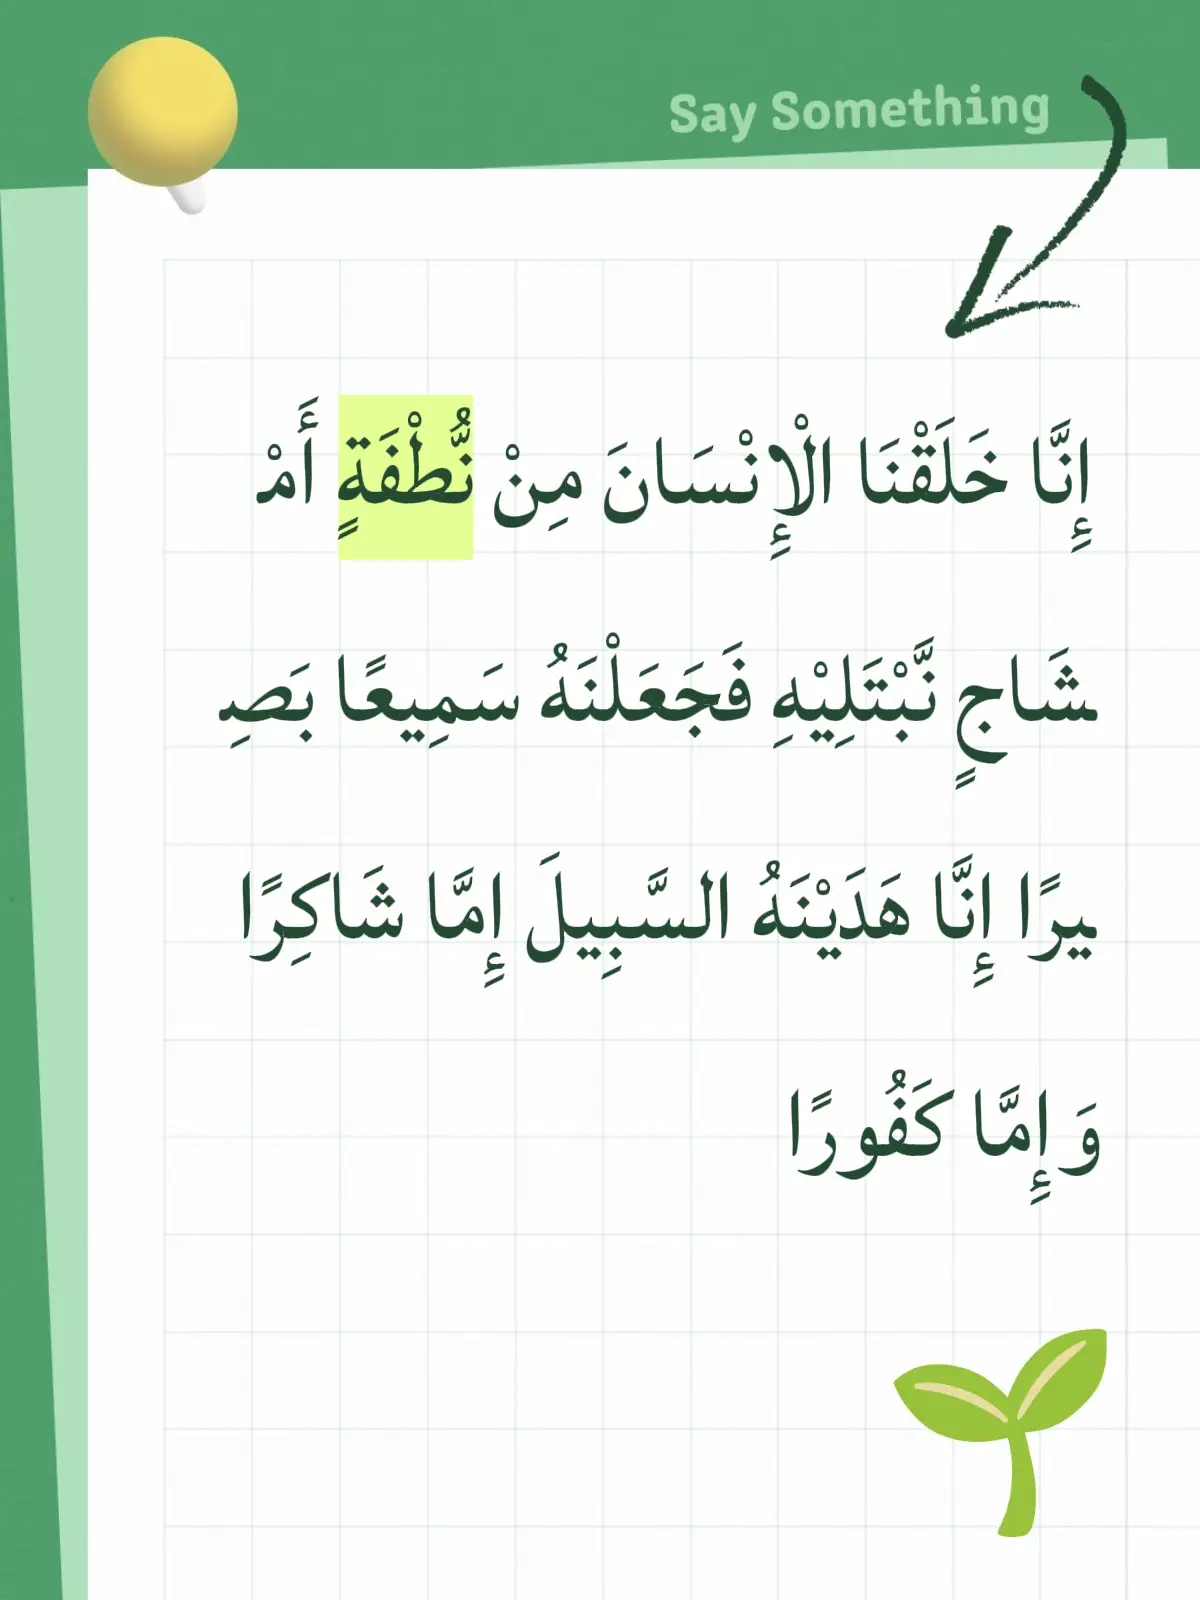 Say Something
إِنَّا خَلَقْنَا الْإِنْسَانَ مِنْ نُّطْفَةٍ أَمْ
شَاجٍ نَّبْتَلِيْهِ فَجَعَلْنَهُ سَمِيعًا بَصِ
يرًا إِنَّا هَدَيْنَهُ السَّبِيلَ إِمَّا شَاكِرًا
وَإِمَّا كَفُورًا